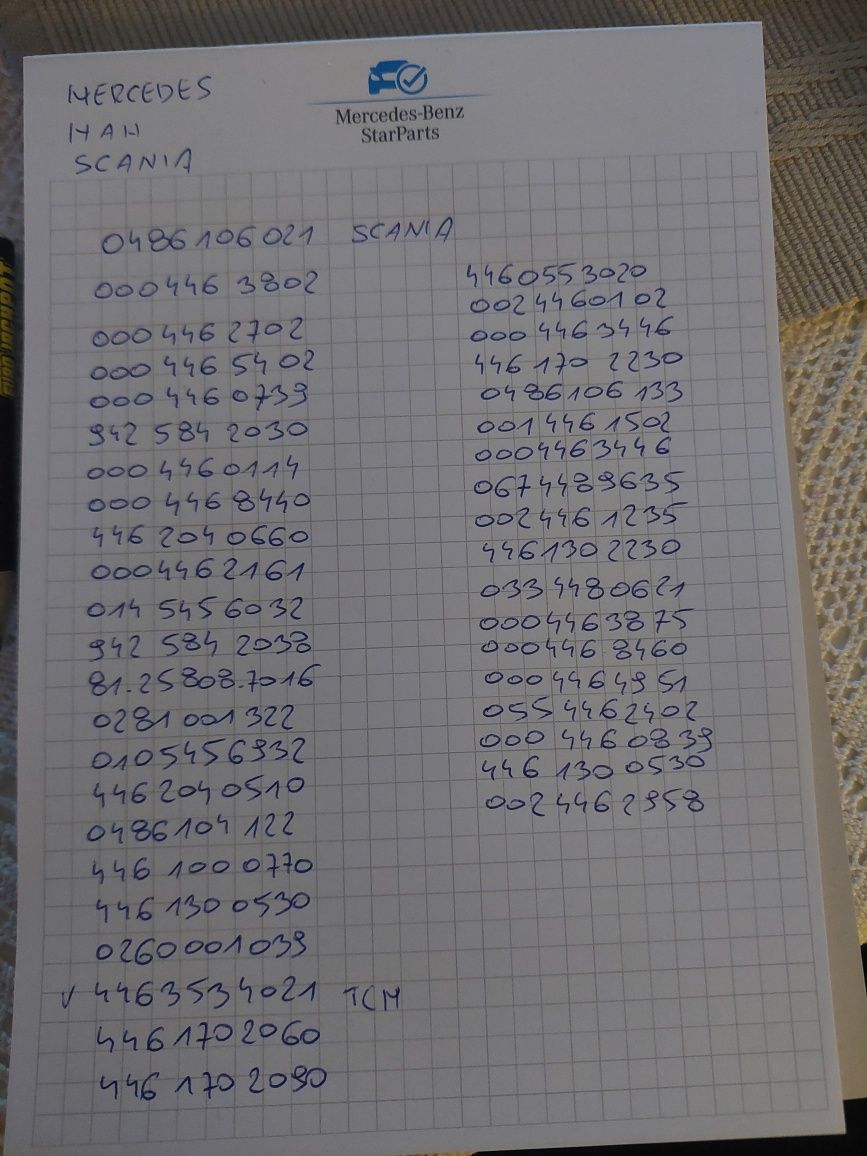 MERCEDES
MAN
SCANIA
Mercedes-Benz
StarParts
0486106021 SCANIA
000446 3802
000 446 2702
000 446 5402
000 446 0739
942 584 2030
000 446 0114
000 446 8440
446 204 0660
0004462161
014 545 6032
942 584 2038
81.25808.7016
0281001322
0105456932
446 2040510
0486104 122
446 100 0770
446 130 0530
0260001039
√ 4463534021 TCM
446 170 2060
446 170 2090
4460553020
0024460102
000 4463446
446 170 2230
0486106 133
001 446 1502
0004463446
0674489635
002446 1235
4461302230
033 4480621
0004463875
000446 8460
000 446 4951
055 4462402
000 446 0839
446 130 0530
002 446 2958